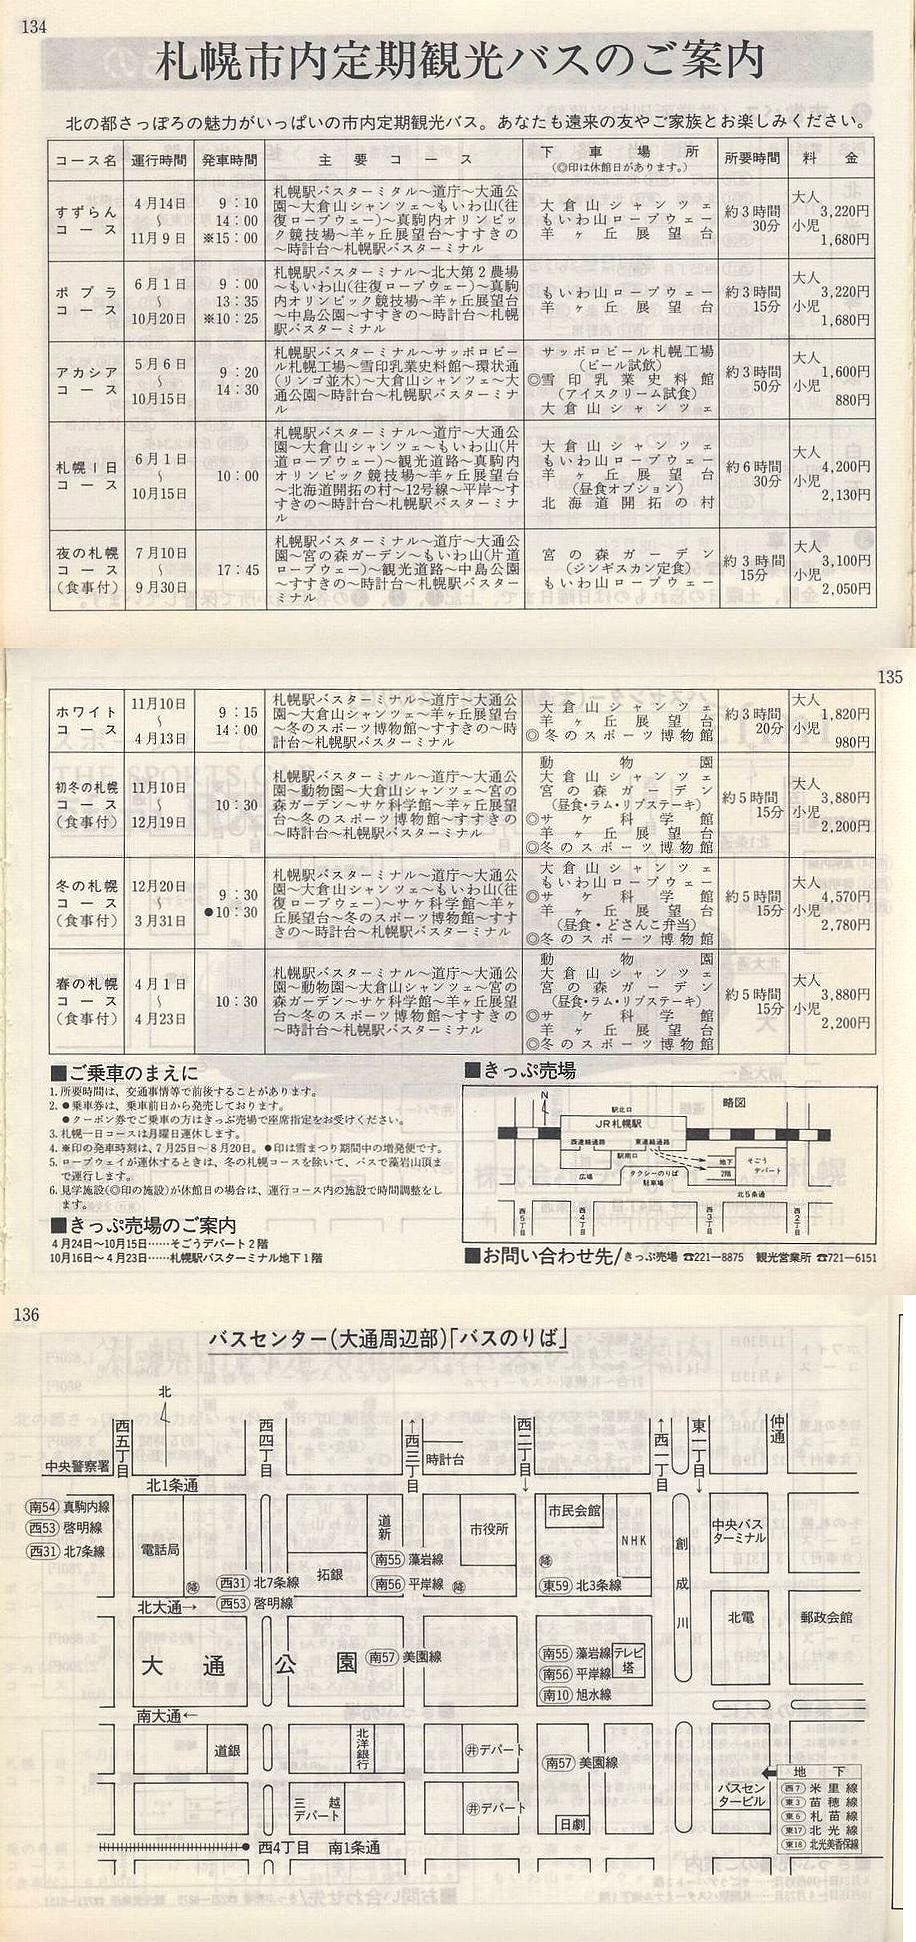 134
札幌市内定期観光バスのご案内
北の都さっぽろの魅力がいっぱいの市内定期観光バス。あなたも遠来の友やご家族とお楽しみください。
コース名 運行時間 発車時間 主要コース 下車場所 (◎印は休館日があります。) 所要時間 料金
すずらん
コース
4月14日
〜
11月9日
9:10
14:00
※15:00
札幌駅バスターミタル〜道庁〜大通公
園〜大倉山シャンツェ〜もいわ山(往
復ロープウェー)〜真駒内オリンピッ
ク競技場〜羊ヶ丘展望台〜すすきの
〜時計台〜札幌駅バスターミナル
大倉山シャンツェ
もいわ山ロープウェー
羊ヶ丘展望台
約3時間
30分
大人
3,220円
小児
1,680円
ポプラ
コース
6月1日
〜
10月20日
9:00
13:35
※10:25
札幌駅バスターミナル〜北大第2農場
〜もいわ山(往復ロープウェー)〜真駒
内オリンピック競技場〜羊ヶ丘展望台
〜中島公園〜すすきの〜時計台〜札幌
駅バスターミナル
もいわ山ロープウェー
羊ヶ丘展望台
約3時間
15分
大人
3,220円
小児
1,680円
アカシア
コース
5月6日
〜
10月15日
9:20
14:30
札幌駅バスターミナル〜サッポロビー
ル札幌工場〜雪印乳業史料館〜環状通
(リンゴ並木)〜大倉山シャンツェ〜大
通公園〜時計台〜札幌駅バスターミナ
ル
サッポロビール札幌工場
(ビール試飲)
◎雪印乳業史料館
(アイスクリーム試食)
大倉山シャンツェ
約3時間
50分
大人
1,600円
小児
880円
札幌1日
コース
6月1日
〜
10月15日
10:00
札幌駅バスターミナル〜道庁〜大通公
園〜大倉山シャンツェ〜もいわ山(片
道ロープウェー)〜観光道路〜真駒内
オリンピック競技場〜羊ヶ丘展望台
〜北海道開拓の村〜12号線〜平岸〜す
すきの〜時計台〜札幌駅バスターミナ
ル
大倉山シャンツェ
もいわ山ロープウェー
羊ヶ丘展望台
(昼食オプション)
北海道開拓の村
約6時間
30分
大人
4,200円
小児
2,130円
夜の札幌
コース
(食事付)
7月10日
〜
9月30日
17:45
札幌駅バスターミナル〜道庁〜大通公
園〜宮の森ガーデン〜もいわ山(片道
ロープウェー)〜観光道路〜中島公園
〜すすきの〜時計台〜札幌駅バスター
ミナル
宮の森ガーデン
(ジンギスカン定食)
もいわ山ロープウェー
約3時間
15分
大人
3,100円
小児
2,050円
135
ホワイト
コース
11月10日
〜
4月13日
9:15
14:00
札幌駅バスターミナル〜道庁〜大通公
園〜大倉山シャンツェ〜羊ヶ丘展望台
〜冬のスポーツ博物館〜すすきの〜時
計台〜札幌駅バスターミナル
大倉山シャンツェ
羊ヶ丘展望台
◎冬のスポーツ博物館
約3時間
20分
大人
1,820円
小児
980円
初冬の札幌
コース
(食事付)
11月10日
〜
12月19日
10:30
札幌駅バスターミナル〜道庁〜大通公
園〜動物園〜大倉山シャンツェ〜宮の
森ガーデン〜サケ科学館〜羊ヶ丘展望
台〜冬のスポーツ博物館〜すすきの
〜時計台〜札幌駅バスターミナル
動物園
大倉山シャンツェ
宮の森ガーデン
(昼食・ラム・リブステーキ)
◎サケ科学館
羊ヶ丘展望台
◎冬のスポーツ博物館
約5時間
15分
大人
3,880円
小児
2,200円
冬の札幌
コース
(食事付)
12月20日
〜
3月31日
9:30
●10:30
札幌駅バスターミナル〜道庁〜大通公
園〜大倉山シャンツェ〜もいわ山(往
復ロープウェー)〜サケ科学館〜羊ヶ
丘展望台〜冬のスポーツ博物館〜すす
きの〜時計台〜札幌駅バスターミナル
大倉山シャンツェ
もいわ山ロープウェー
◎サケ科学館
羊ヶ丘展望台
(昼食・どさんこ弁当)
◎冬のスポーツ博物館
約5時間
15分
大人
4,570円
小児
2,780円
春の札幌
コース
(食事付)
4月1日
〜
4月23日
10:30
札幌駅バスターミナル〜道庁〜大通公
園〜動物園〜大倉山シャンツェ〜宮の
森ガーデン〜サケ科学館〜羊ヶ丘展望
台〜冬のスポーツ博物館〜すすきの
〜時計台〜札幌駅バスターミナル
動物園
大倉山シャンツェ
宮の森ガーデン
(昼食・ラム・リブステーキ)
◎サケ科学館
羊ヶ丘展望台
◎冬のスポーツ博物館
約5時間
15分
大人
3,880円
小児
2,200円
■ご乗車のまえに
1. 所要時間は、交通事情等で前後することがあります。
2. ●乗車券は、乗車前日から発売しております。
●クーポン券でご乗車の方はきっぷ売場で座席指定をお受けください。
3. 札幌一日コースは月曜日運休します。
4. ※印の発車時刻は、7月25日〜8月20日。●印は雪まつり期間中の増発便です。
5. ロープウェイが運休するときは、冬の札幌コースを除いて、バスで藻岩山頂ま
で運行します。
6. 見学施設(◎印の施設)が休館日の場合は、運行コース内の施設で時間調整をし
ます。
■きっぷ売場のご案内
4月24日〜10月15日……そごうデパート2階
10月16日〜4月23日……札幌駅バスターミナル地下1階
■きっぷ売場
N
略図
駅北口
JR札幌駅
西連絡通路
東連絡通路
駅南口
広場
タクシーのりば
駐車場
地下
2階
そごう
デパート
北5条通
西5丁目
西4丁目
西3丁目
西2丁目
■お問い合わせ先/きっぷ売場 ☎221−8875 観光営業所 ☎721−6151
136
バスセンター(大通周辺部)「バスのりば」
北
西五丁目
西四丁目
←西三丁目
西二丁目→
←西一丁目
東一丁目→
仲通
中央警察署
時計台
北1条通
南54 真駒内線
西53 啓明線
西31 北7条線
電話局
降
西31 北7条線
西53 啓明線
拓銀
道新
南55 藻岩線
南56 平岸線
降
市役所
市民会館
NHK
降
東59 北3条線
創成川
中央バス
ターミナル
北大通→
大通公園
南57 美園線
南55 藻岩線
南56 平岸線
南10 旭水線
テレビ
塔
北電
郵政会館
南大通←
道銀
北洋銀行
井デパート
南57 美園線
三越
デパート
井デパート
日劇
バスセン
タービル
地下
西7 米里線
東3 苗穂線
東6 札苗線
東17 北光線
東18 北光美香保線
西4丁目 南1条通